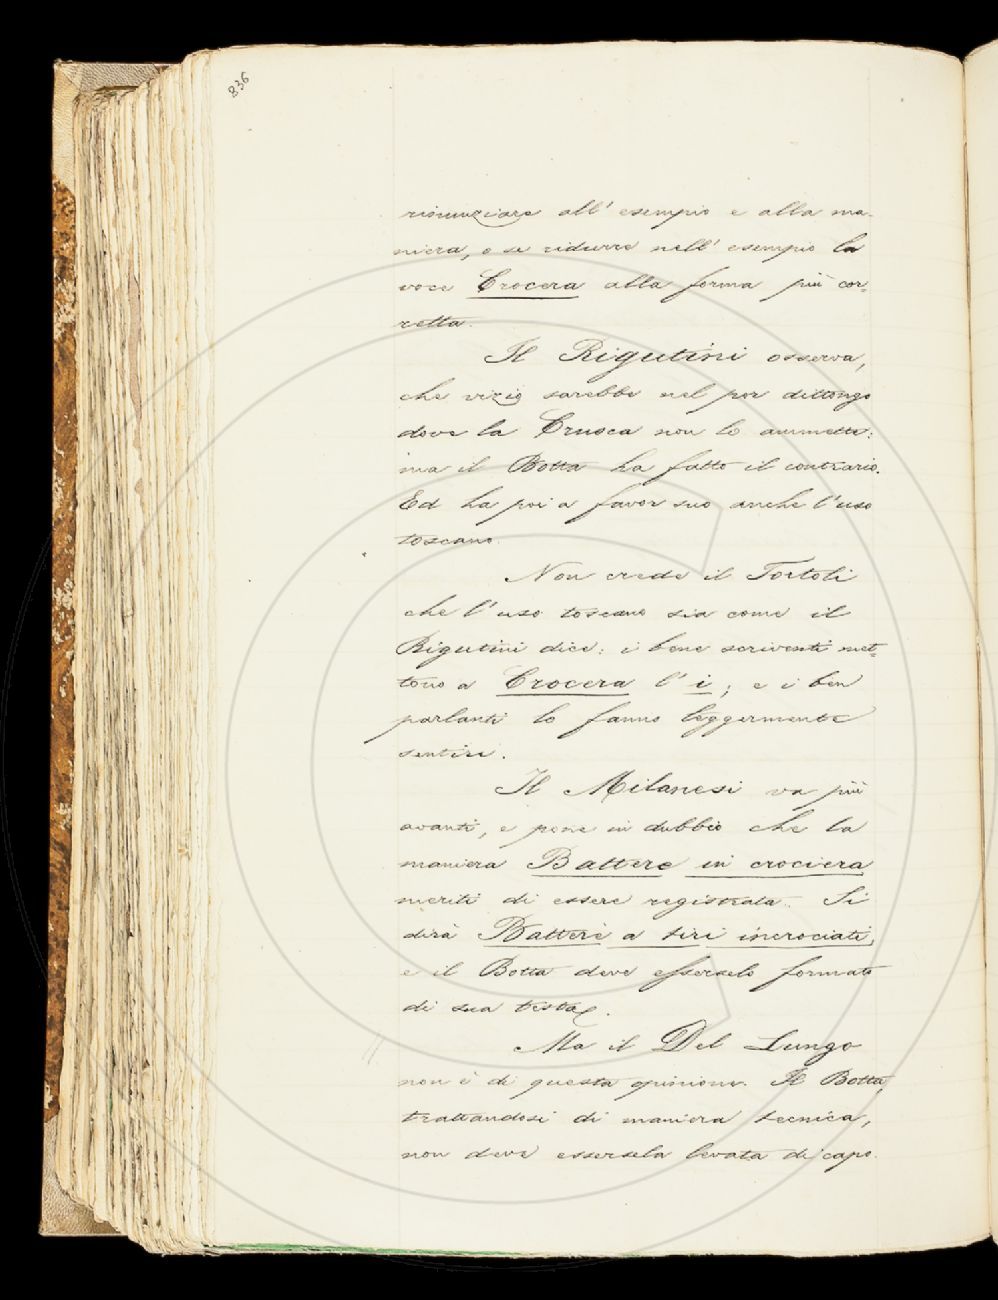 836
rinunziare all' esempio e alla ma-
niera, o se ridurre nell' esempio la
voce Crocera alla forma più cor-
retta.
Il Rigutini osserva,
che vizio sarebbe nel por dittongo
dove la Crusca non lo ammette:
ma il Botta ha fatto il contrario.
Ed ha poi a favor suo anche l'uso
toscano.
Non crede il Tortoli
che l'uso toscano sia come il
Rigutini dice: i bene scriventi met-
tono a Crocera l'i; e i ben
parlanti lo fanno leggermente
sentire.
Il Milanesi va più
avanti, e pone in dubbio che la
maniera Battere in crociera
meriti di essere registrata. Si
dirà Battere a tiri incrociati,
e il Botta deve esserselo formato
di sua testa.
Ma il Del Lungo
non è di questa opinione. Il Botta,
trattandosi di maniera tecnica,
non deve essersela levata di capo.